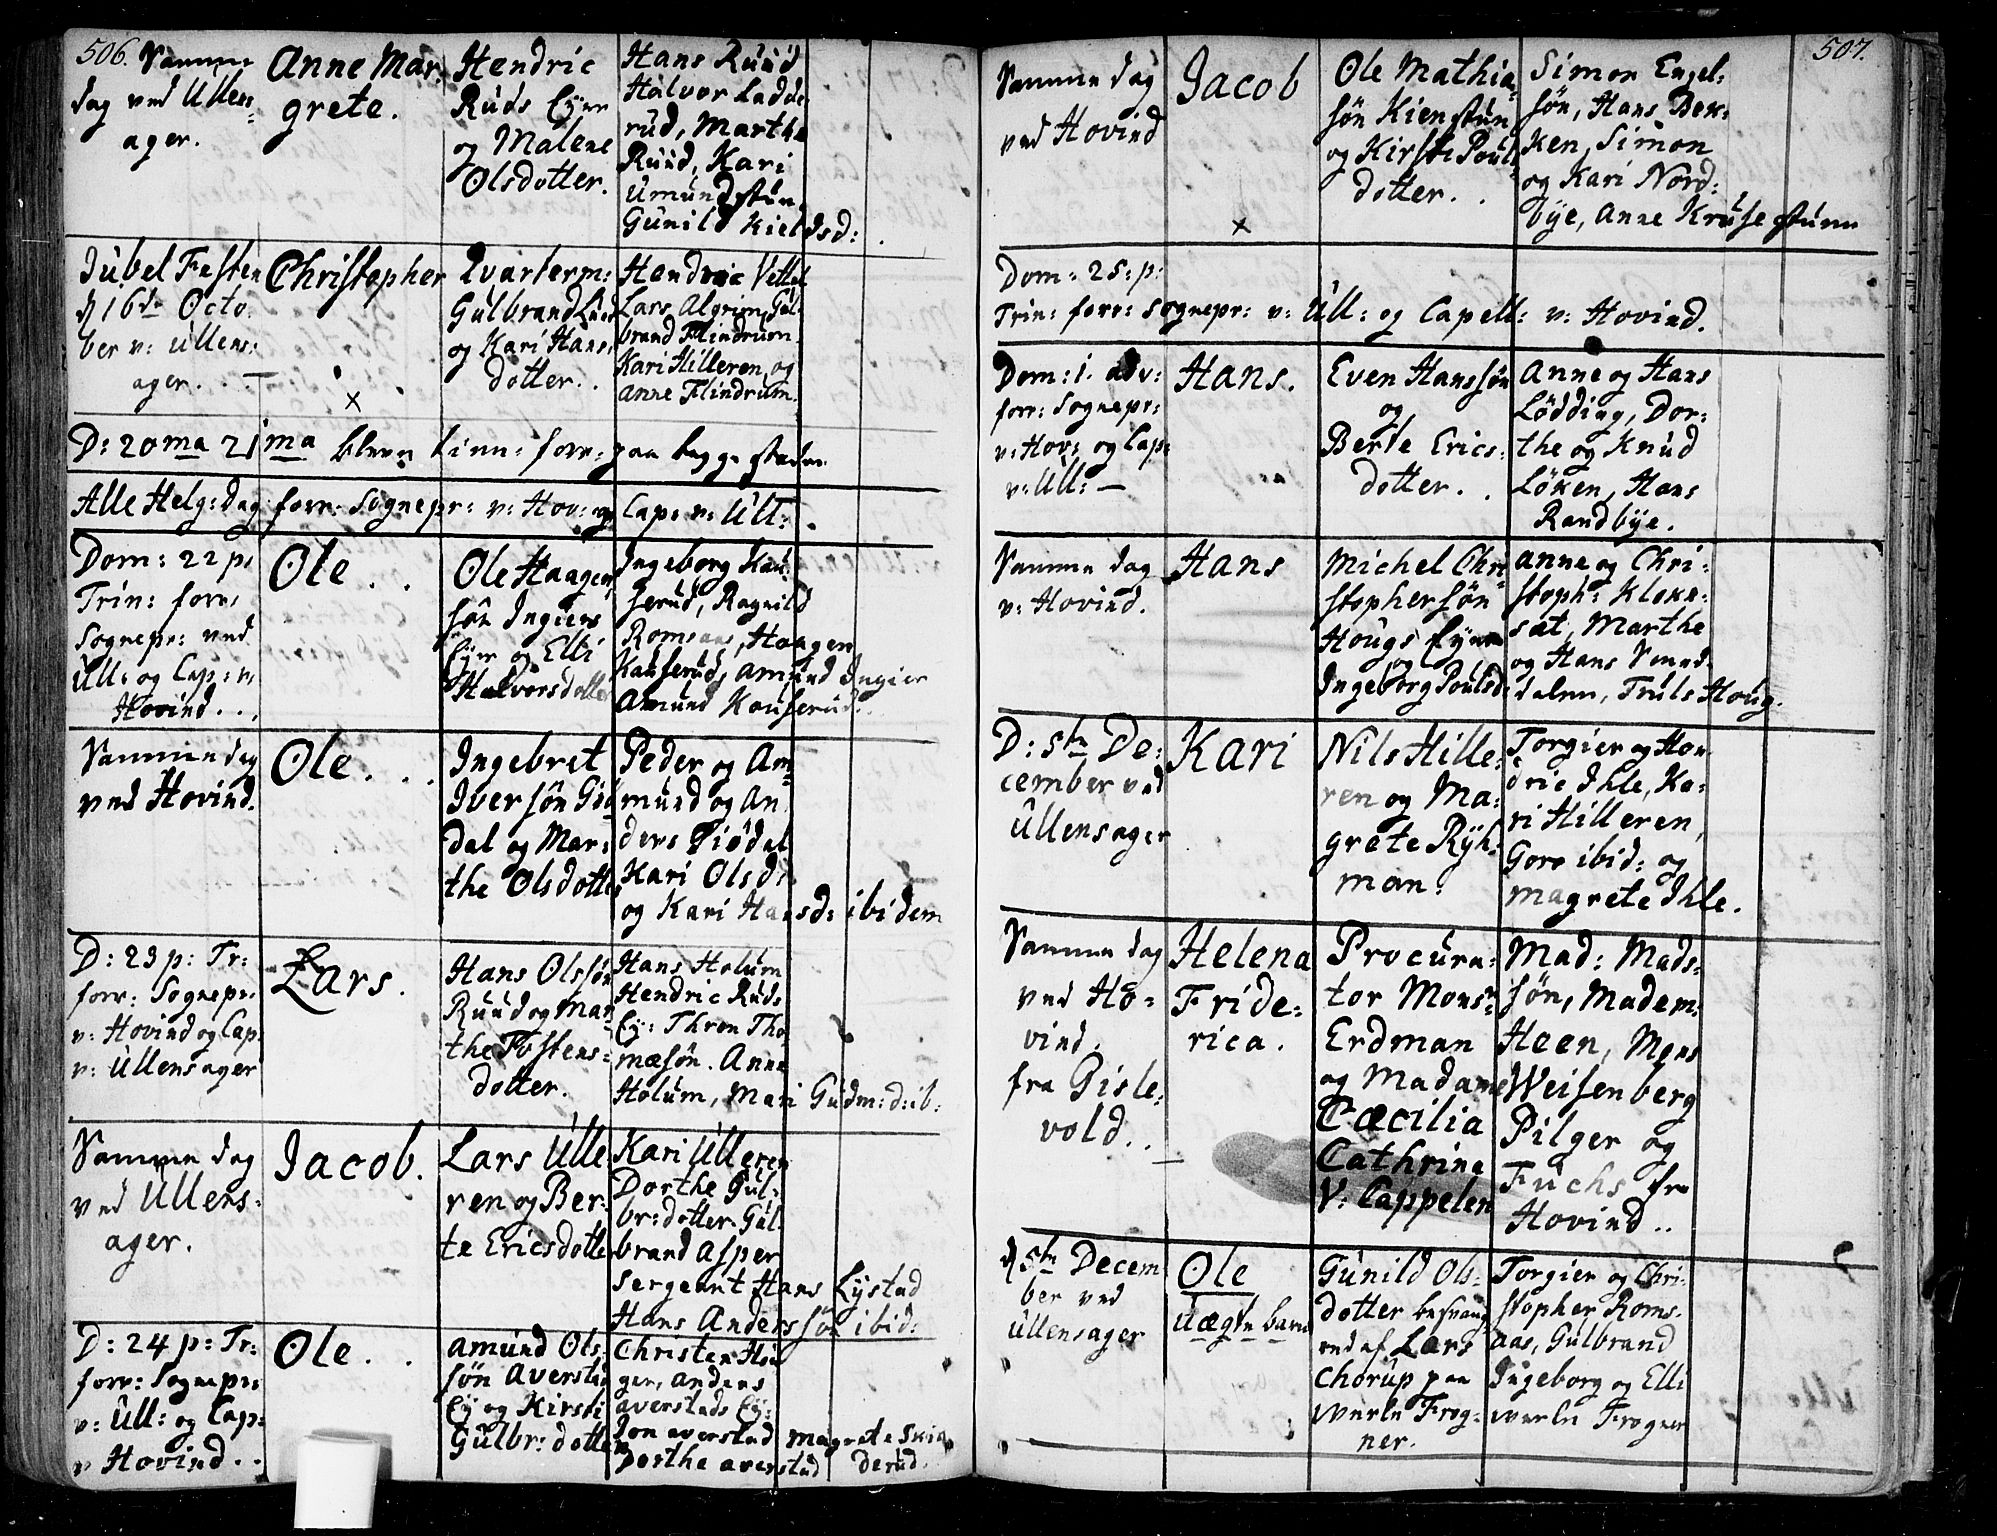 506.
Samme
dag ved Ullens:
ager.
Anne Mar,
grete.
Hendric
Ruds Eyer
og Malene
Olsdotter.
Hans Ruud
Halvor Ladde
rud, Marthe
Ruud, Kari
Umundstun.
Gunild Kieldsd:
Jubel Festen
d 16de Octo.
ber v: Ullens:
ager.
Christopher
Qvarterm:
Gulbrand
og Kari Hans,
dotter.
Hendric
Lars Algrim, Gul
brand Flindrum
Kari Hilleren, og
Anne Flindrum.
D: 20ma 21ma bleve forr: paa begge steder
Alle Helg: dag forr: Sognepr: v: Hov: og Cap: v: Ull:
Dom: 22 p,
Trin: forr,
Sognepr: ved
Ull: og Cap: v,
Hovind...
Ole.
Ole Haagen
søn Ingiers
Eyer og Elli
Halvorsdotter
Ingeborg Kau
serud, Ragnild
Romsaas, Haagen
Kauserud, Amund Ingier
Amund Kauserud.
Samme dag
ved Hovind.
Ole.
Ingebret
Iversøn Giø
dal og Mar:
the Olsdotte
Peder og Am
mund og An
ders Giødal
Kari Olsd:
og Kari Hansd: ibidem
D: 23 p: Tr:
forr: Sognepr:
v: Hovind og Cap.
v: Ullensager
Lars.
Hans Olssøn
Ruud og Mar
the Tostens=
dotter.
Hans Holum
Hendric Ruds
Ey: Thron Tho
mæsøn. Anne
Holum, Mari Gudm: d: ib:
Samme dag
ved Ullens:
ager.
Jacob.
Lars Ulle
ren og Ber:
te Ericsdotte
Kari Ulleren
Dorthe Gul:
br: dotter. Gul
brand Asper
Sergeant Hans Lystad
Hans Anderssøn ibid:
D: 24 p: Tr:
forr: Sognepr:
v: Ull: og Cap:
v Hovind..
Ole..
Amund Ols
søn Aversta
Ey og Kirsti
Gulbr: dotter
Christen
gen, Anders
Averstads Ey:
Jon Averstad Magrete Skia
Dorthe Averstad derud.
507.
Samme dag
ved Hovind
Jacob
Ole Mathia=
søn Kienstun
og Kirsti Pouls
dotter.
Simon Engel:
søn, Hans Bek:
ken, Simon
og Kari Nord:
bye, Anne Krusestuen
Dom: 25: p:
Trin: forr: Sognepr: v: Ull: og Capell: v: Hovind.
Dom: 1. adv:
forr: Sognepr:
v: Hov: og Cap:
v: Ull: —
Hans.
Even Hanssøn
og
Berte Erics:
dotter.
Anne og Hans
Lødding, Dor:
the og Knud
Løken, Hans
Randbye.
Samme dag
v: Hovind.
Hans
Michel Chri
stophersøn
Hougs Eyer
og
Ingeborg Poulsd:
Anne og Chri:
stoph: Klokk:
sat, Marthe
og Hans
dalen, Truls Houg.
D: 5te De:
cember ved
Ullensager
Kari
Nils Hille:
ren og Ma:
grete Ryh:
man.
Torgier og Hen
dric Ihle, Ka:
ri Hilleren,
Goro ibid: og
Magrete Ihle.
Samme dag
ved Ho=
vind.
fra Gisle:
vold..
Helena
Fride:
rica.
Procura:
tor Monsr:
Erdman
og Madame
Cæcilia
Cathrina
V: Cappelen
Mad: Mads:
søn, Madem:
Heen, Mons
Weisenberg
Pilger og
Fuchs fra
Hovind..
d 5te Decem
ber ved
Ullensager
Ole
Uægte barn
Gunild Ols=
dotter besvang
red af Lars
Chorup paa
Werle Frog=
ner.
Torgier og Chri=
stopher Roms
aas, Gulbrand
Ingeborg og Elli
Werle Frogner